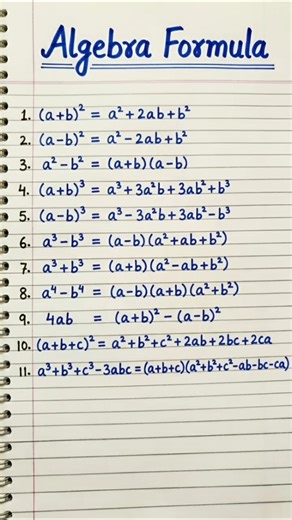 Algebra Formula
1. (a+b)² = a²+2ab+b²
2. (a-b)² = a²-2ab+b²
3. a²-b² = (a+b)(a-b)
4. (a+b)³ = a³+3a²b+3ab²+b³
5. (a-b)³ = a³-3a²b+3ab²-b³
6. a³-b³ = (a-b)(a²+ab+b²)
7. a³+b³ = (a+b)(a²-ab+b²)
8. a⁴-b⁴ = (a-b)(a+b)(a²+b²)
9. 4ab = (a+b)²-(a-b)²
10. (a+b+c)² = a²+b²+c²+2ab+2bc+2ca
11. a³+b³+c³-3abc=(a+b+c)(a²+b²+c²-ab-bc-ca)